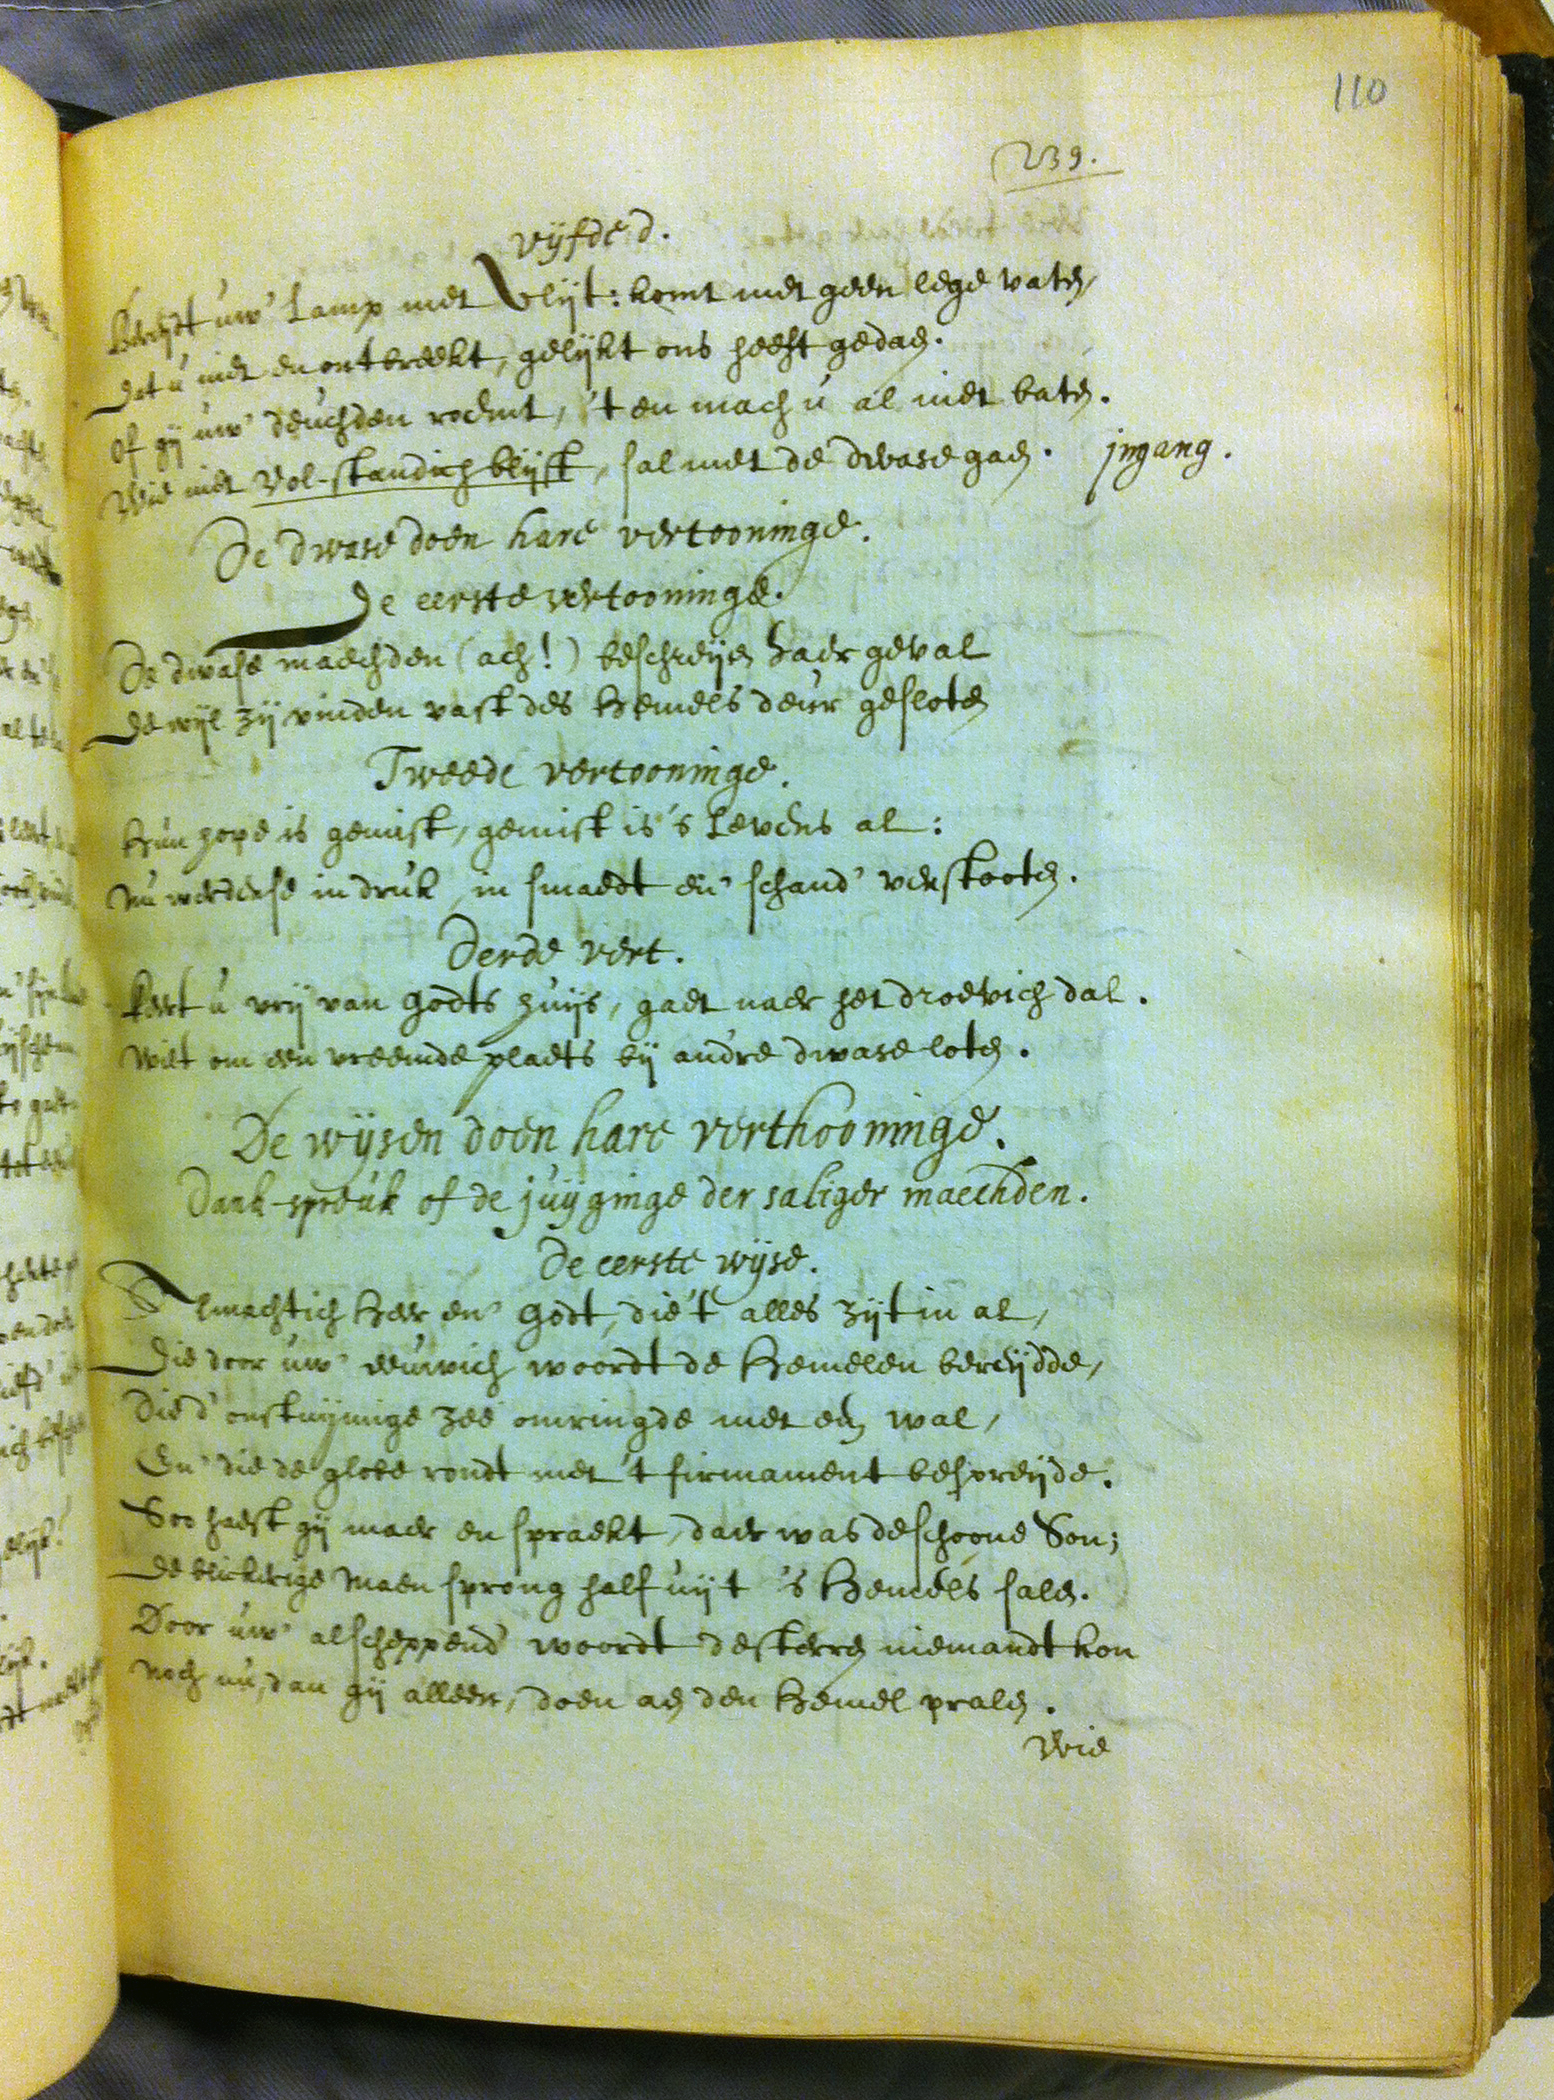 110
239.
vijfde d.
Bereijdt uw' Lamp met vlijt: komt met geen lege vaten,
dat u niet en ontbreekt, gelijkt ons heeft gedaen.
Of gij uw' deuchden roemt, 't en mach u al niet baten.
Wie niet vol-standich blijft, sal met de dwase gaen. jngang.
De dwase doen hare vertooninge.
De eerste vertooninge.
De dwase maechden (ach!) beschreijen haer geval
de wijl zij vinden vast des Hemels deur gesloten
Tweede vertooninge.
Hun hope is gemist, gemist is 's Levens al:
nu werdense in druk, in smaedt en' schand' verstooten.
Derde vert.
keert u vrij van Godts huijs, gaet naer het droevich dal.
wilt om een vreemde plaets bij andre dwase loten.
De wijsen doen hare verthooninge.
Dank-spreuk of de juijginge der saliger maechden.
De eerste wijse.
Almachtich Heer en' Godt, die 't alles zijt in al,
die door uw' eeuwich woordt de Hemelen bereijdde,
Die d' onstuijmige zee omringde met een wal,
En' die de globe rondt met 't firmament bespreijde.
Soo haest gij maer en spraekt, daer was de schoone Son;
de blickerige Maen sprong half uijt 's Hemels salen.
Door uw' alscheppend' woordt de sterren niemandt kon
noch nu, dan gij alleen, doen aen den Hemel pralen.
Wie